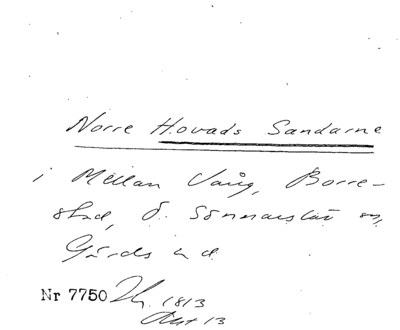 Norre Hovads Sandarne
i Mellan Vång, Borre-
stad, Ö. Sönnarslöv sn,
Gärds hd
Nr 7750 1813
Akt 13